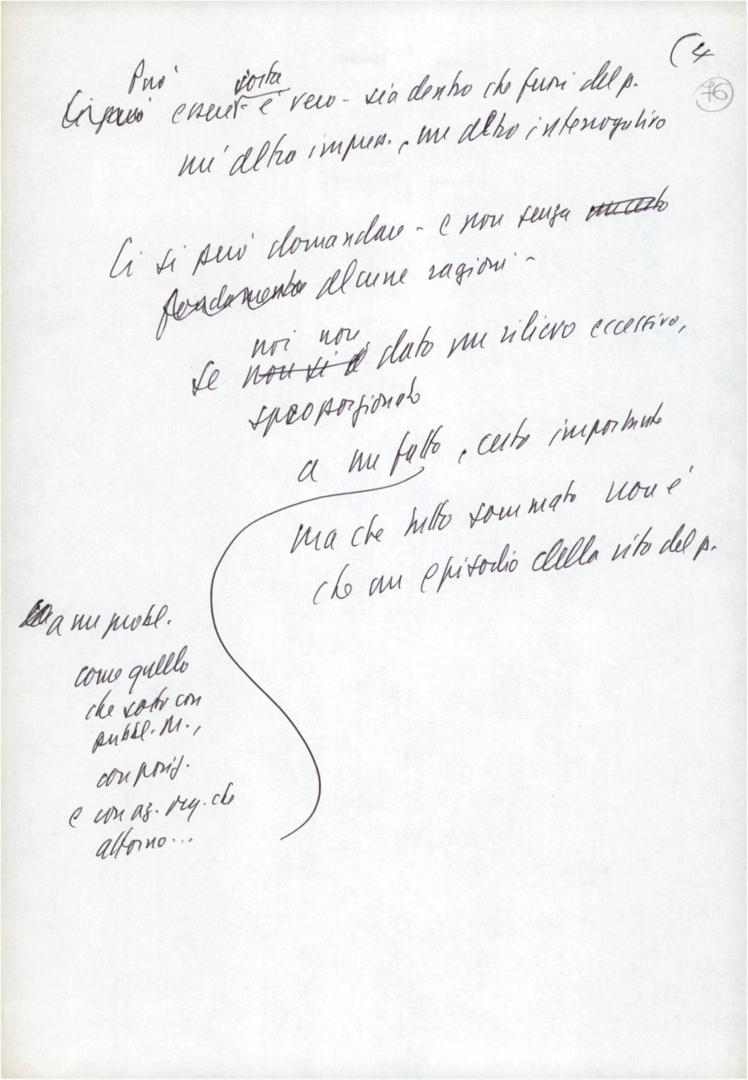 (4
76
Può sorta
esserci - è vero - sia dentro che fuori del p.
un'altra impress., un altro interrogativo
Ci si può domandare - e non senza
fondamento alcune ragioni -
noi non
se non si è dato un rilievo eccessivo,
sproporzionato
a un fatto, certo importante
ma che tutto sommato non è
che un episodio della vita del p.
a un probl.
come quello
che sorto con
pubbl. M.,
con posiz.
e con az. org. che
attorno...